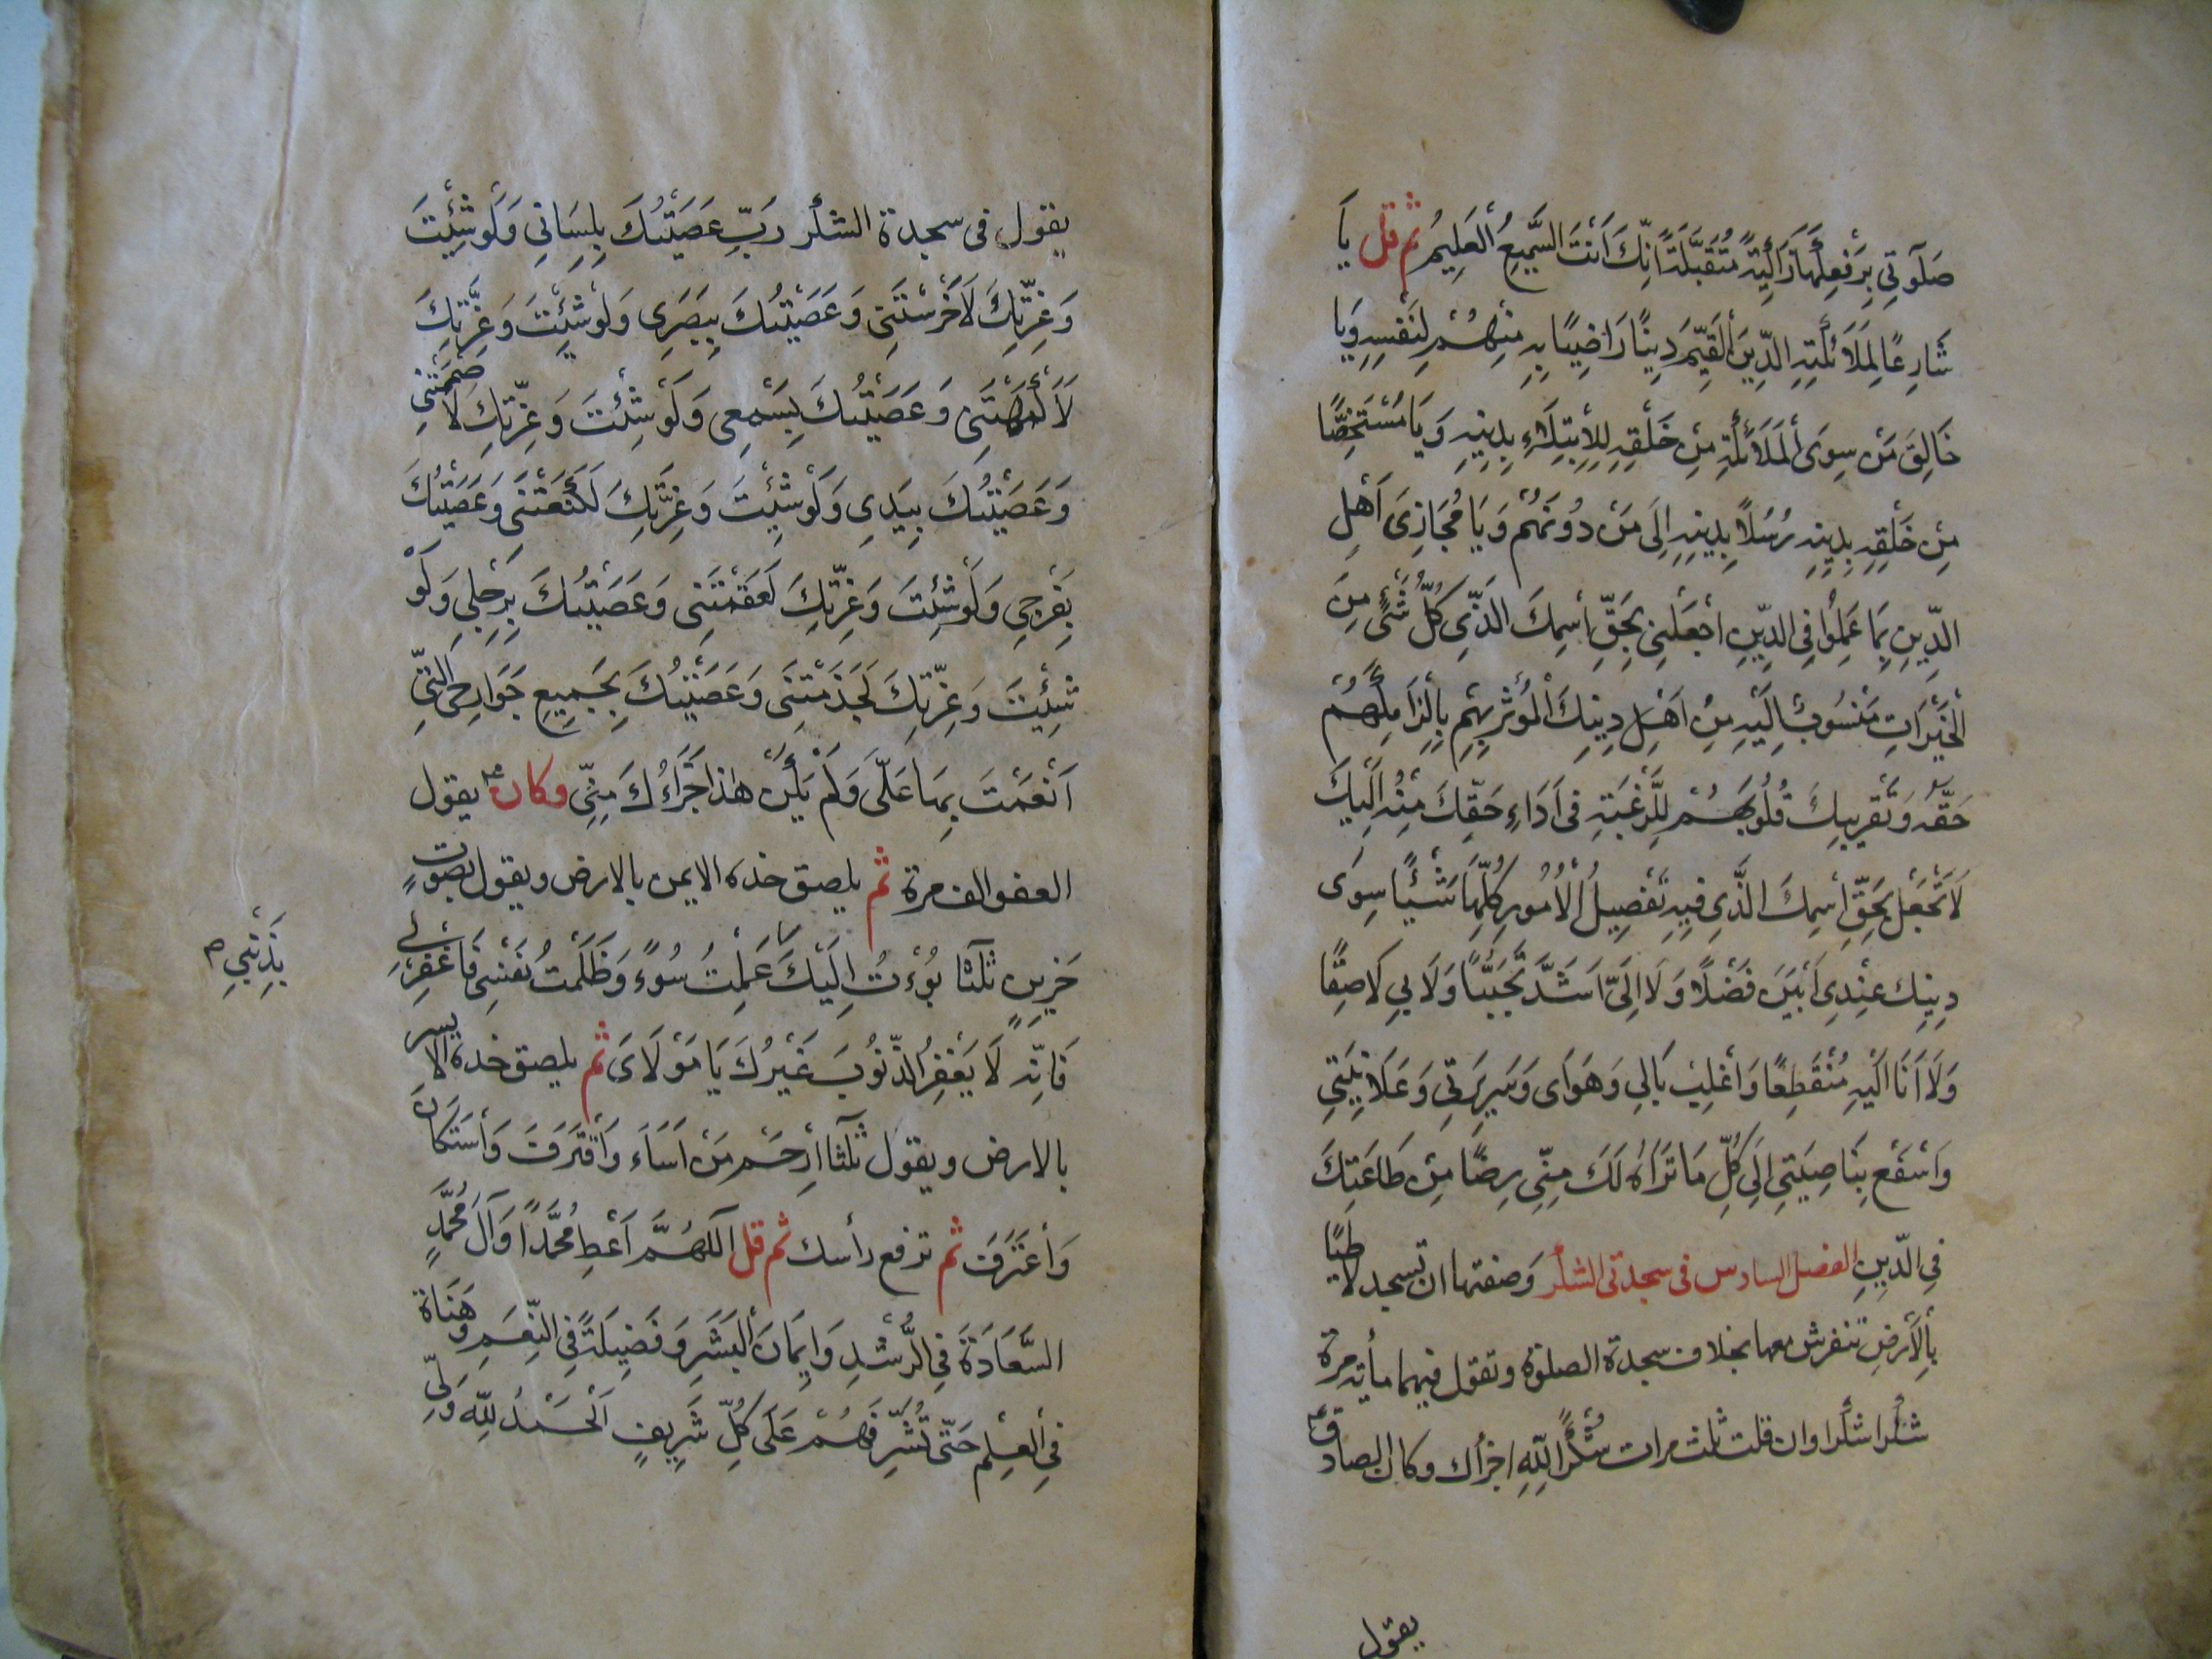 صَلَوتِي بِرَفْعِهَا زَاكِيَةً مُتَقَبَّلَةً اِنَّكَ اَنْتَ السَّمِيعُ الْعَلِيمُ ثم قل يَا
شَارِعًا لِمَلَائِكَتِهِ الدِّينَ الْقَيِّمَ دِينًا رَاضِيًا بِهِ مِنْهُمْ لِنَفْسِهِ وَيَا
خَالِقَ مَنْ سِوَى الْمَلَائِكَةِ مِنْ خَلْقِهِ لِلْاِبْتِلَاءِ بِدِينِهِ وَيَا مُسْتَخِصًّا
مِنْ خَلْقِهِ بِدِينِهِ رُسُلًا بِدِينِهِ اِلَى مَنْ دُونَهُمْ وَيَا مُجَازِيَ اَهْلِ
الدِّينِ بِمَا عَمِلُوا فِي الدِّينِ اجْعَلْنِي بِحَقِّ اسْمِكَ الَّذِي كُلُّ شَيْءٍ مِنَ
الْخَيْرَاتِ مَنْسُوبٌ اِلَيْهِ مِنْ اَهْلِ دِينِكَ الْمُؤْثَرِ بِهِ بِاِلْزَامِكَهُمْ
حَقَّهُ وَتَفْرِيغِكَ قُلُوبَهُمْ لِلرَّغْبَةِ فِي اَدَاءِ حَقِّكَ مِنْهُ اِلَيْكَ
لَا تَجْعَلْ بِحَقِّ اسْمِكَ الَّذِي فِيهِ تَفْصِيلُ الْاُمُورِ كُلِّهَا شَيْئًا سِوَى
دِينِكَ عِنْدِي اَبْيَنَ فَضْلًا وَلَا اِلَيَّ اَشَدَّ تَحَبُّبًا وَلَا بِي لَاصِقًا
وَلَا اَنَا اِلَيْهِ مُنْقَطِعًا وَاغْلِبْ بَالِي وَهَوَايَ وَسَرِيرَتِي وَعَلَانِيَتِي
وَاسْفَعْ بِنَاصِيَتِي اِلَى كُلِّ مَا تَرَاهُ لَكَ مِنِّي رِضًا مِنْ طَاعَتِكَ
فِي الدِّينِ الفصل السادس فى سجدتى الشكر وصفتها ان تسجد لاطئًا
بِالْاَرْضِ تنفرش معها بخلاف سجدة الصلوة وتقول فيهما مأية مرة
شكرا شكرا وان قلت ثلث مرات شُكْرًا لِلّٰهِ اجزأك وكان الصادق ع
يقول
يقول فى سجدة الشكر رَبِّ عَصَيْتُكَ بِلِسَانِي وَلَوْ شِئْتَ
وَعِزَّتِكَ لَاَخْرَسْتَنِي وَعَصَيْتُكَ بِبَصَرِي وَلَوْ شِئْتَ وَعِزَّتِكَ
لَاَكْمَهْتَنِي وَعَصَيْتُكَ بِسَمْعِي وَلَوْ شِئْتَ وَعِزَّتِكَ لَاَصْمَمْتَنِي
وَعَصَيْتُكَ بِيَدِي وَلَوْ شِئْتَ وَعِزَّتِكَ لَكَنَّعْتَنِي وَعَصَيْتُكَ
بِفَرْجِي وَلَوْ شِئْتَ وَعِزَّتِكَ لَعَقَمْتَنِي وَعَصَيْتُكَ بِرِجْلِي وَلَوْ
شِئْتَ وَعِزَّتِكَ لَجَذَمْتَنِي وَعَصَيْتُكَ بِجَمِيعِ جَوَارِحِي الَّتِي
اَنْعَمْتَ بِهَا عَلَيَّ وَلَمْ يَكُنْ هٰذَا جَزَاءُكَ مِنِّي وكان ع يقول
العفو الف مرة ثم يلصق خده الايمن بالارض ويقول بصوتٍ
حَزِينٍ ثلثا بُؤْتُ اِلَيْكَ عَمِلْتُ سُوءً وَظَلَمْتُ نَفْسِي فَاغْفِرْ لِي
بِذَنْبِي
فَاِنَّهُ لَا يَغْفِرُ الذُّنُوبَ غَيْرُكَ يَا مَوْلَايَ ثم يلصق خده الايسر
بالارض ويقول ثلثا اِرْحَمْ مَنْ اَسَاءَ وَاقْتَرَفَ وَاسْتَكَانَ
وَاعْتَرَفَ ثم ترفع رأسك ثم قل اَللّٰهُمَّ اَعْطِ مُحَمَّدًا وَآلَ مُحَمَّدٍ
السَّعَادَةَ فِي الرُّشْدِ وَاِيمَانَ الْيُسْرِ وَفَضِيلَةً فِي النِّعَمِ وَهَنَاةً
فِي الْعِلْمِ حَتَّى تُشَرِّفَهُمْ عَلَى كُلِّ شَرِيفٍ اَلْحَمْدُ لِلّٰهِ وَلِيِّ